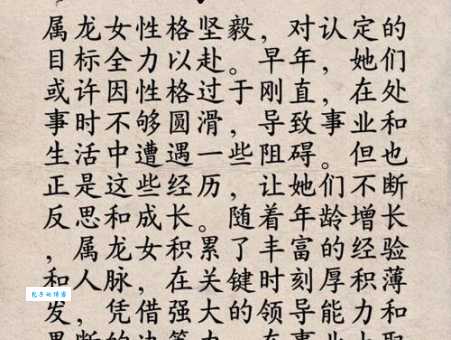 属龙女性格坚毅，对认定的
目标全力以赴。早年，她们
或许因性格过于刚直，在处
事时不够圆滑，导致事业和
生活中遭遇一些阻碍。但也
正是这些经历，让她们不断
反思和成长。随着年龄增长
，属龙女积累了丰富的经验
和人脉，在关键时刻厚积薄
发，凭借强大的领导能力和
果断的决策力，在事业上取